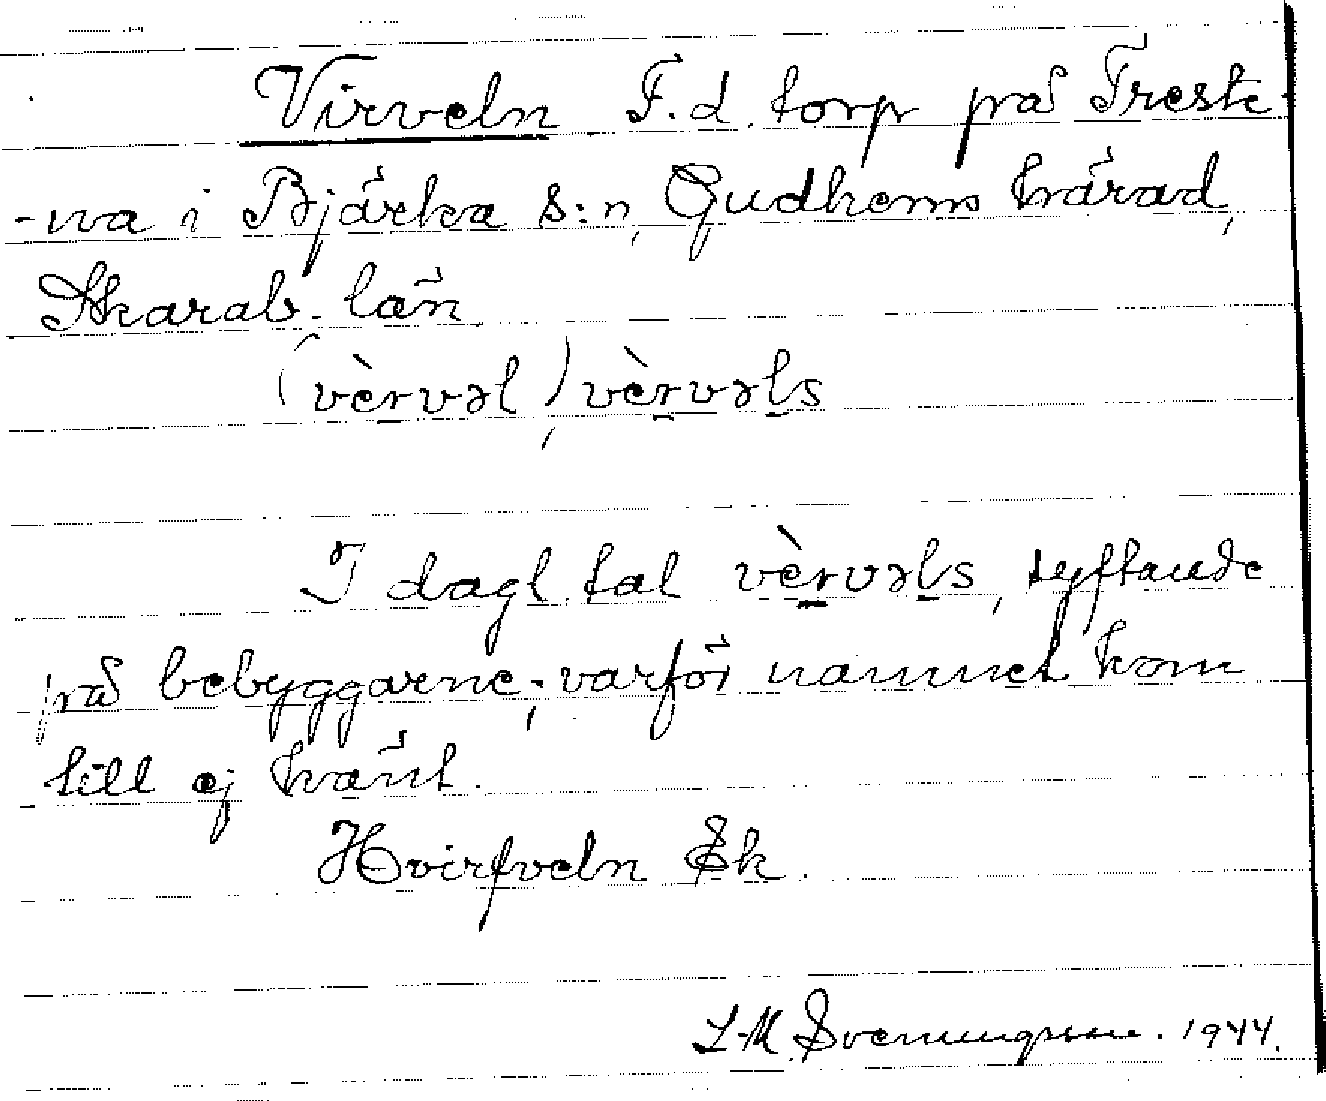 Virveln F.d. torp på Trest-
-na i Bjärka s:n, Gudhems härad,
Skarab. län
(vèrvəl), vèrvəls
I dagl. tal vèrvəls, syftande
på bebyggarne; varför namnet kom
till ej känt.
Hvirfveln Ek.
L-M. Svenungsson. 1944.